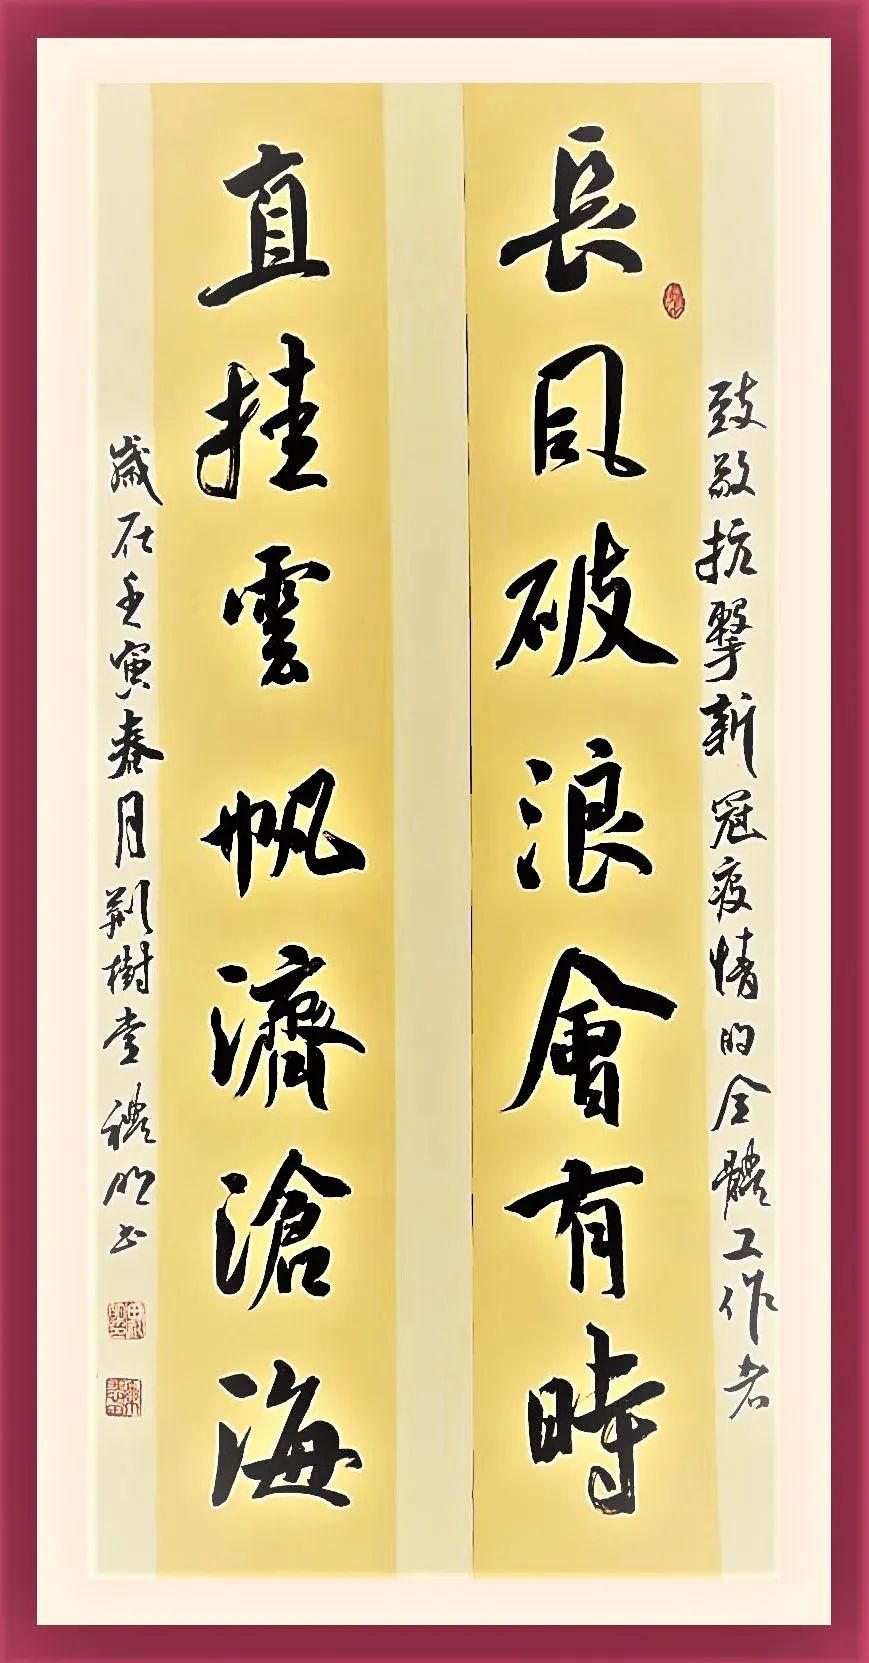 致敬抗擊新冠疫情的全體工作者
長風破浪會有時
直挂雲帆濟滄海
歲在壬寅春月荆樹堂禮明书